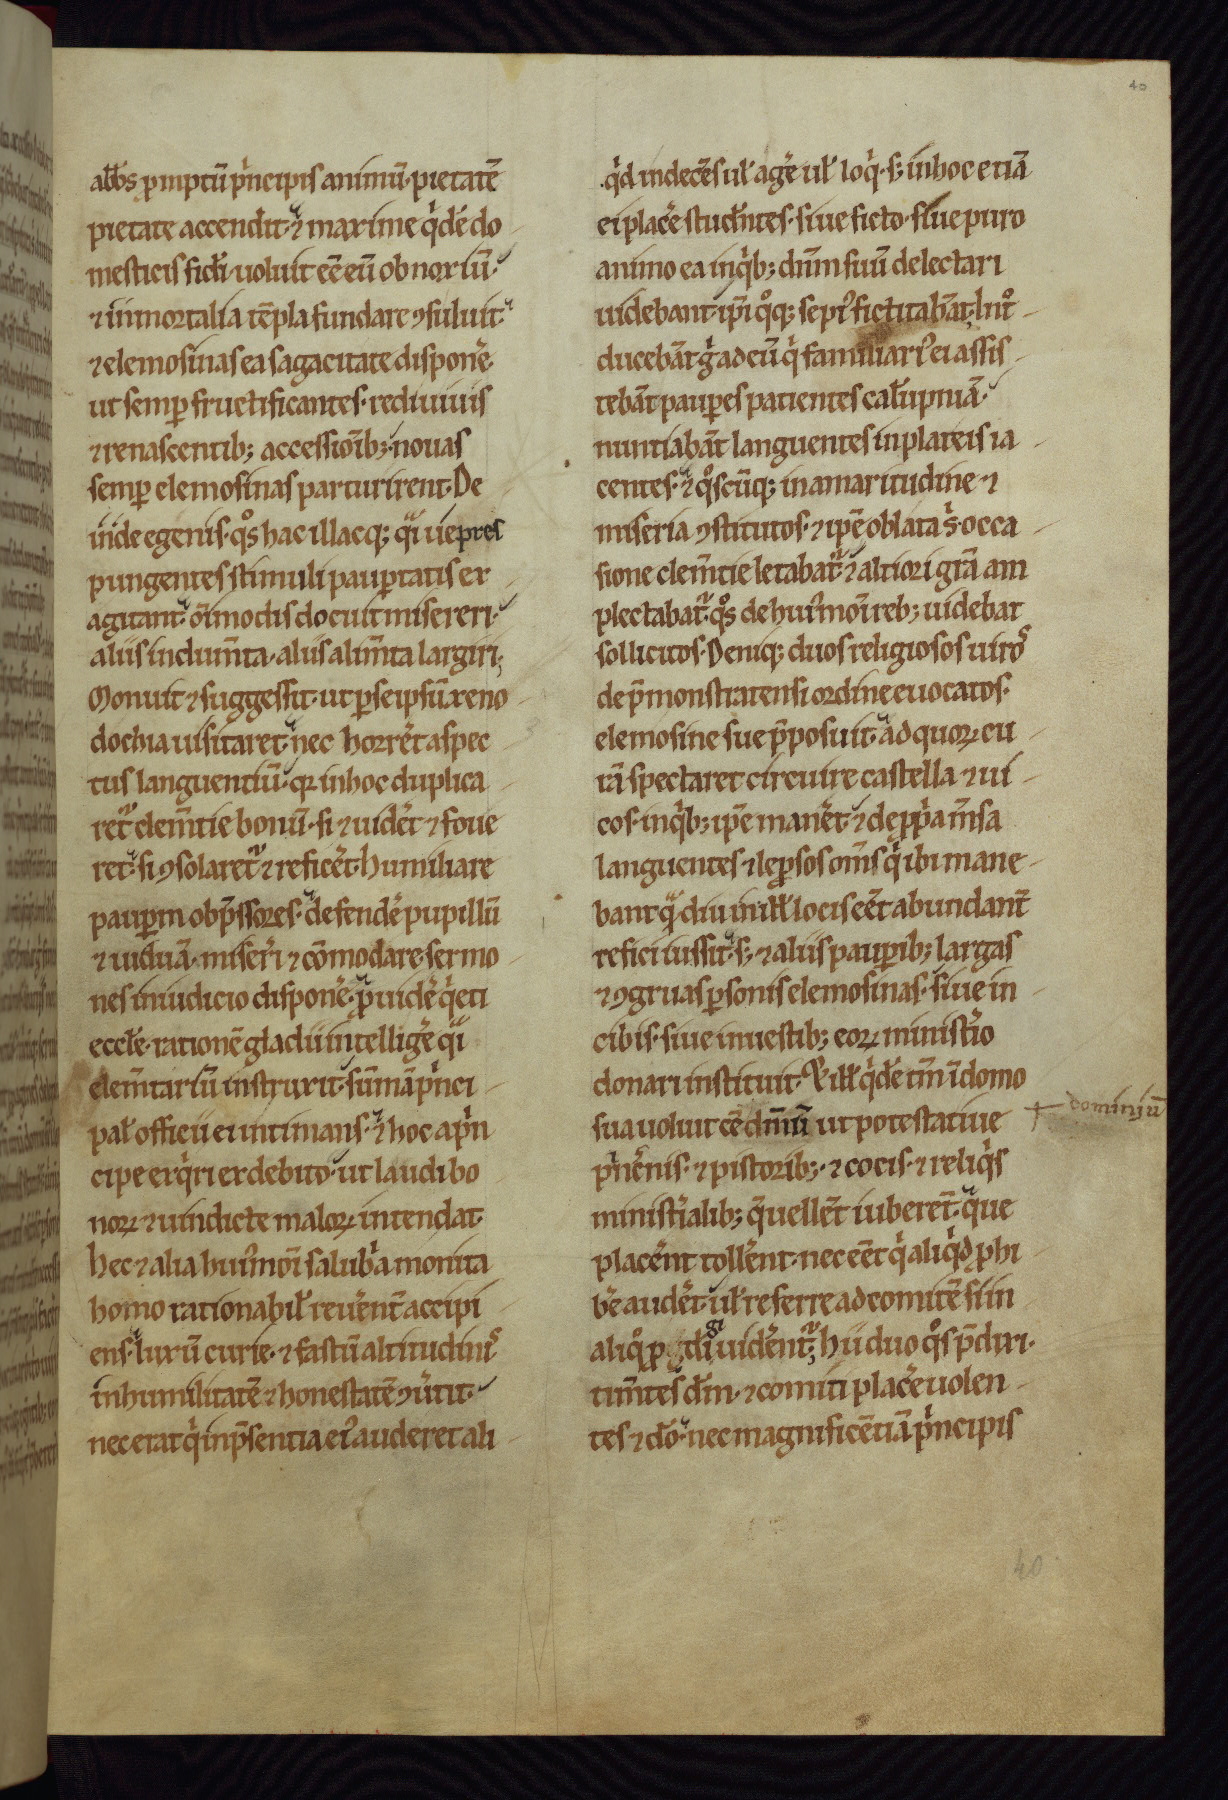 40
abb̄s ꝓmptū pͥncipis animū· pietatē
pietate accendit· ⁊ maxime qͥdē do
mesticis fidei uoluit eē eū obnoxiū·
⁊ inmortalia tēpla fundare ꝯsuluit·
⁊ elemosinas ea sagacitate disponẽ
ut semꝑ fructificantes· rediuiuis
⁊ renascentib; accessiōib; nouas
semꝑ elemosinas parturirent· De
inde egenis· qͦs hac illacq; qͣsi uepres
pungentes stimuli pauꝑtatis ex
agitant· oīmodis docuit misereri·
aliis indum̄ta· aliis alim̄ta largiri;
Monuit ⁊ suggessit· ut ꝑ seipsū xeno
dochia uisitaret· nec horrēt aspec
tus languentiū· qꝛ in hoc duplica
ret᷑ clem̄tie bonū· si ⁊ uidēt ⁊ foue
ret· si ꝯsolaret᷑ ⁊ reficēt· humiliare
pauꝑm obp̄ssores· defendē pupillū
⁊ uiduā· miseri ⁊ cōmodare sermo
nes in iudicio disponē· ꝓuidē qͥeti
eccłe· rationē gladii intelligē qͣsi
elem̄tariū instruxit· sūmā pͥnci
pal̄ officii ei intimans· ⁊ hoc a pͥn
cipe exqͥri ex debito· ut laudi bo
noꝝ ⁊ uindicte maloꝝ intendat·
hec ⁊ alia hui᷒moī salubͥa monita
homo rationabil̄ reuēnt̄ accipi
ens· luxū curie· ⁊ fastū altitudinis
in humilitatē ⁊ honestatē ꝯūtit·
nec erat qͥ in p̄sentia ei᷒ auderet ali
qͥd indecēs ul̄ agē ul̄ loqͥ· s; in hoc etiā
ei placē studētes· siue ficto· siue puro
animo ea inqͥb; dn̄m suū delectari
uidebant· ip̄i qͦq; sepi᷒ fictitabāt· Int̊
ducebāt᷑ gͦ ad eū qͥ familiari᷒ ei assis
tebāt pauꝑes patientes calūpniā·
nuntiabāt languentes in plateis ia
centes· ⁊ qͦscūq; in amaritudine ⁊
miseria ꝯstitutos· ⁊ ip̄e oblata s᷒ occa
sione clem̄tie letabat᷑· ⁊ altiori gr̄a am
plectabat᷑· qͦs de hui᷒moī reb; uidebat
sollicitos· Deniq; duos religiosos uiros
de p̄monstratensi ordine euocatos·
elemosine sue p̄posuit· ad quoꝝ cu
rā spectaret circuire castella ⁊ ui
cos· inqͥb; ip̄e manēt· ⁊ de ꝓpͥa m̄sa
languentes ⁊ lep̄sos om̄s qͥ ibi mane
bant qͣdiu in ill̄ locis eēt abundant̄
refici iussit· s; ⁊ aliis pauꝑib; largas
⁊ ꝯgruas ꝑsonis elemosinas· siue in
cibis· siue in uestib; eoꝝ ministͥo
donari instituit· Et ill̄ qͥdē tm̄ ī domo
sua uoluit eē dmīniū ut potestatiue
p̄nēnis· ⁊ pistorib;· ⁊ cocis· ⁊ reliqͥs
ministͥalib; qͦ uellēt iuberēt· que
placēnt tollēnt· nec eēt qͥ aliqͥd ꝓhi
bē audēt· ul̄ referre ad comitē si in
aliqͦ ꝓdigi uidēnt᷑; hii duo qͦs p̄dixi·
tim̄tes dm̄· ⁊ comiti placē uolen
tes ⁊ dō· nec magnificētiā pͥncipis
† dominiū
40